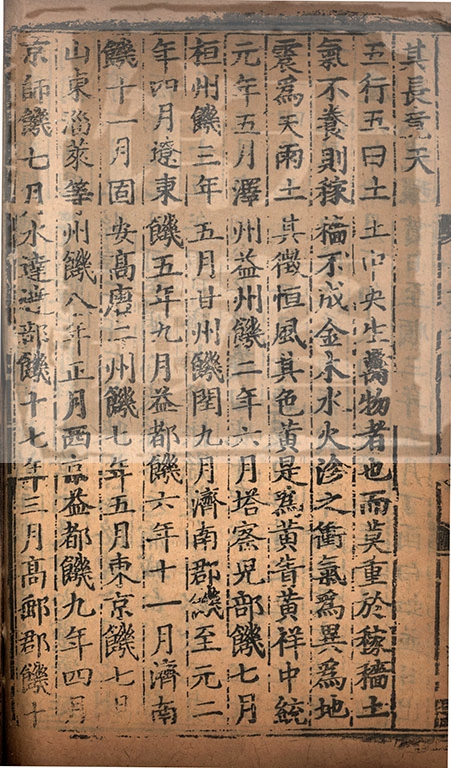 其長竟天
五行五曰土土中央生萬物者也而莫重於稼穡土
氣不養則稼穡不成金木水火沴之衝氣爲異爲地
震爲天雨土其徵恒風其色黃是爲黃眚黃祥中統
元年五月澤州益州饑二年六月塔察兒部饑七月
桓州饑三年五月甘州饑九月濟南郡饑至元二
年四月遼東饑五年九月益都饑六年十一月濟南
饑十一月固安高唐二州饑七年五月東京饑七月
山東淄萊等州饑八年正月西京益都饑九年四月
京師饑七月水達達部饑十七年三月高郵郡饑十